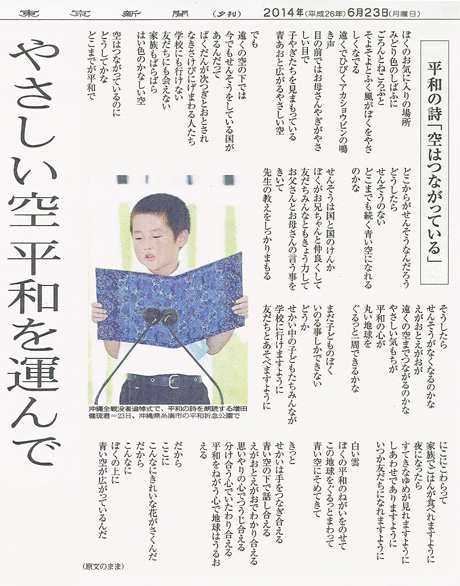 東京新聞
(夕刊)
2014年(平成26年)6月23日(月曜日)
平和の詩「空はつながっている」
やさしい空 平和を運んで
ぼくのお気に入りの場所
みどり色のしばふに
ごろんとねころぶと
そよそよとふく風がぼくをやさ
しくなでる
遠くでひびくアカショウビンの鳴
き声
目の前ではお母さんやぎがやさ
しい目で
子やぎたちを見まもっている
青あおと広がるやさしい空
でも
遠くの空の下では
今でもせんそうをしている国が
あるんだって
ばくだんが次つぎとおとされ
なきさけびにげまわる人たち
学校にも行けない
友だちにも会えない
家族もばらばら
はい色のかなしい空
空はつながっているのに
どうしてかな
どこまでが平和で
どこからがせんそうなんだろう
どうしたら
せんそうのない
どこまでも続く青い空になれる
のかな
せんそうは国と国のけんか
ぼくがお兄ちゃんと仲良くして
友だちみんなともきょう力して
お父さんとお母さんの言う事を
きいて
先生の教えをしっかりまもる
そうしたら
せんそうがなくなるのかな
えがおとえがおが
遠くの空までつながるのかな
やさしい気もちが
平和の心が
丸い地球を
ぐるっと一周できるかな
まだ子どものぼく
いのる事しかできない
どうか
せかい中の子どもたちみんなが
学校に行けますように
友だちとあそべますように
にこにこわらって
家族でごはんが食べれますように
夜になったら
すてきなゆめが見れますように
しあわせでありますように
いつか友だちになれますように
白い雲
ぼくの平和のねがいをのせて
この地球をぐるっとまわって
青い空にそめてきて
きっと
せかいは手をつなぎ合える
青い空の下で話し合える
えがおとえがおでわかり合える
思いやりの心でつうじ合える
分け合う心でいたわり合える
平和をねがう心で地球はうるお
える
だから
ここに
こんなにきれいな花がさくんだ
だから
こんなに
ぼくの上に
青い空が広がっているんだ
(原文のまま)
沖縄全戦没者追悼式で、平和の詩を朗読する増田
健琉君=23日、沖縄県糸満市の平和祈念公園で